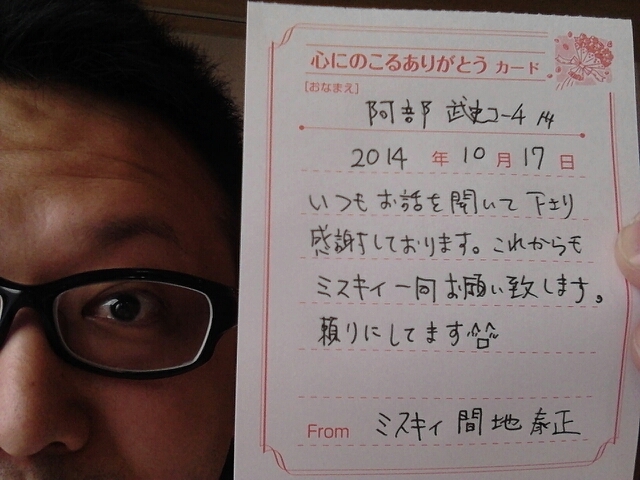 心にのこるありがとう カード
[おなまえ]
阿部 武史コーチ
2014 年 10 月 17 日
いつもお話を聞いて下さり
感謝しております。これからも
ミスキィ一同お願い致します。
頼りにしてます^^
From ミスキィ 間地 泰正